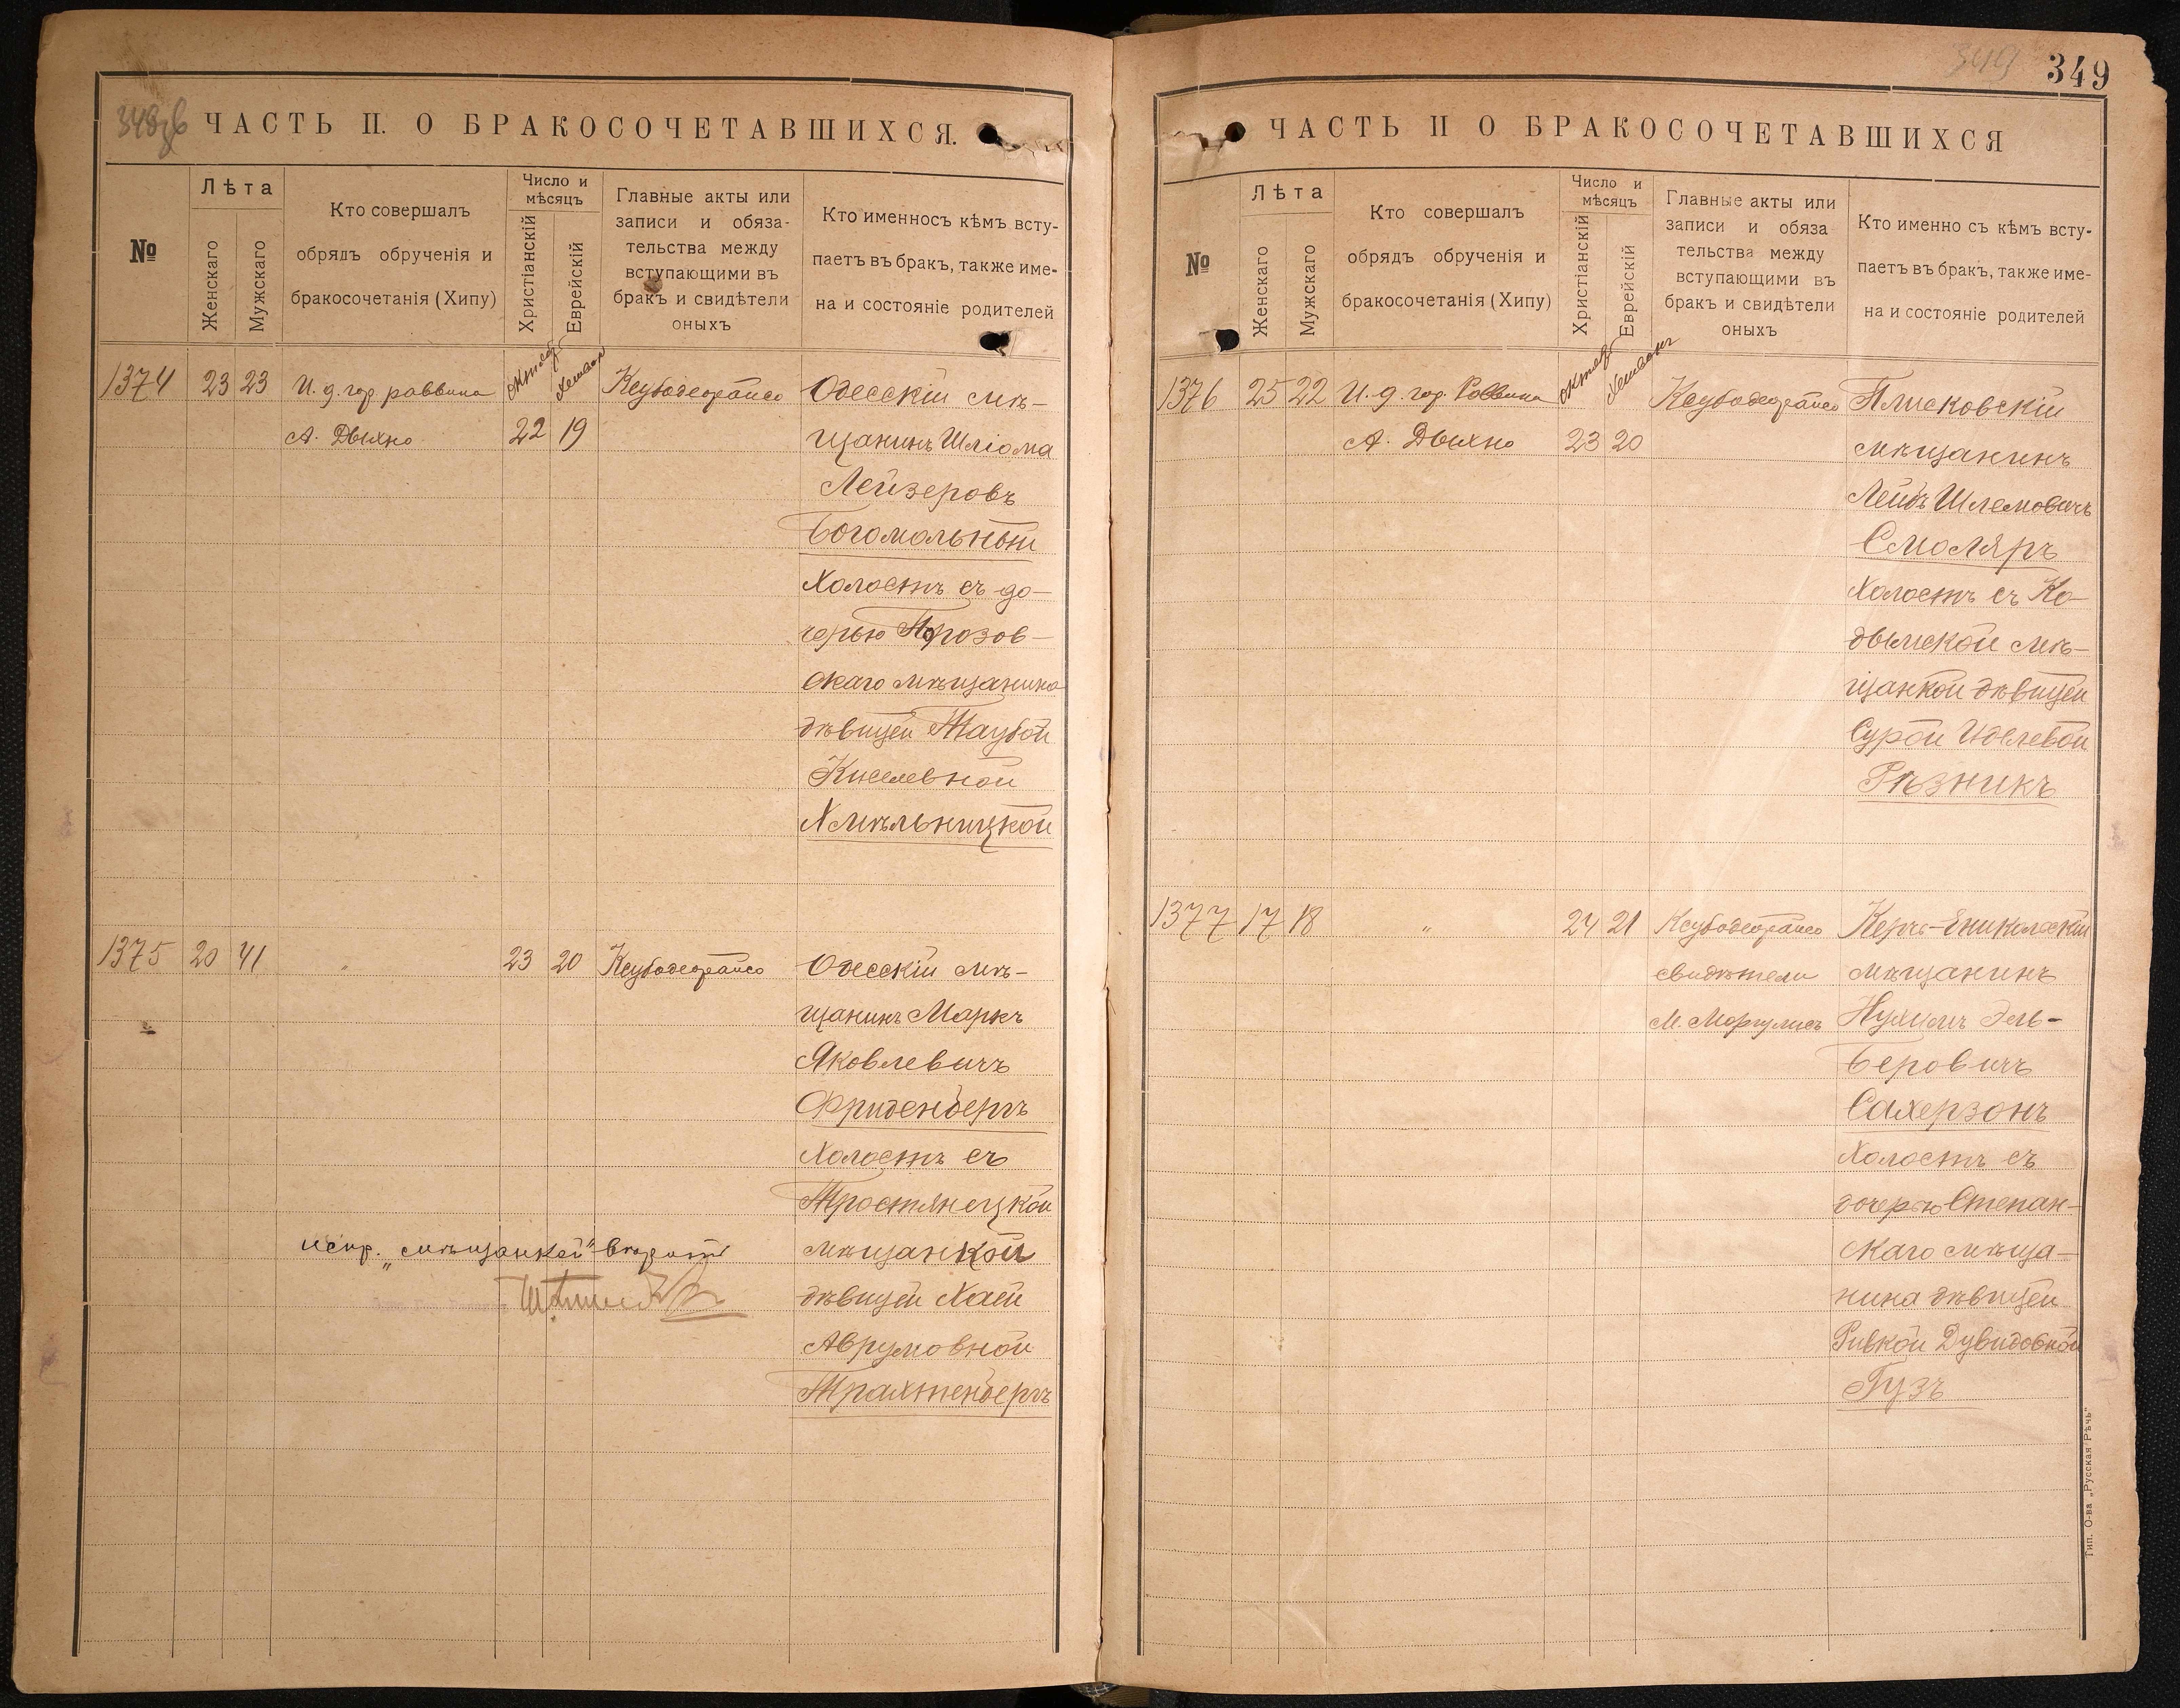 348 об
ЧАСТЬ II. О БРАКОСОЧЕТАВШИХСЯ.
№
Лѣта
Женскаго
Мужскаго
Кто совершалъ
обрядъ обрученія и
бракосочетанія (Хипу)
Число и
мѣсяцъ
Христіанскій
Еврейскій
Главные акты или
записи и обяза-
тельства между
вступающими въ
бракъ и свидѣтели
оныхъ
Кто именносъ кѣмъ всту-
паетъ въ бракъ, также име-
на и состояніе родителей
1374 23 23 И. д. гор. раввина
А. Дыхно
октяб. Хешван
22 19
Ксубодеорайсо
Одесскій мѣ-
щанинъ Шліома
Лейзеровъ
Богомольный
Холостъ съ до-
черью Прозов-
скаго мѣщанина
дѣвицей Таубой
Киселевной
Хмѣльницкой
1375 20 41 " 23 20 Ксубодеорайсо
Одесскій мѣ-
щанинъ Маркъ
Яковлевичъ
Фриденбергъ
Холостъ съ
Тростянецкой
мѣщанкой
дѣвицей Хаей
Аврумовной
Трахтенбергъ
испр. „мѣщанкой" вѣрить
349
349
ЧАСТЬ II О БРАКОСОЧЕТАВШИХСЯ
№
Лѣта
Женскаго
Мужскаго
Кто совершалъ
обрядъ обрученія и
бракосочетанія (Хипу)
Число и
мѣсяцъ
Христіанскій
Еврейскій
Главные акты или
записи и обяза
тельства между
вступающими въ
бракъ и свидѣтели
оныхъ
Кто именно съ кѣмъ всту-
паетъ въ бракъ, также име-
на и состояніе родителей
1376 25 22 И. д. гор. Раввина
А. Дыхно
октяб. Хешванъ
23 20
Ксубодеорайсо
Плисковскій
мѣщанинъ
Лейбъ Шлемовичъ
Смоляръ
Холостъ съ Ко-
дымской мѣ-
щанкой дѣвицей
Сурой Иделевой
Рѣзникъ
1377 17 18 " 24 21 Ксубодеорайсо
свидѣтели
М. Моргулисъ
Керчь-Еникольскій
мѣщанинъ
Нухимъ Эль-
Беровичъ
Сахерзонъ
Холостъ съ
дочерью Степан-
скаго мѣща-
нина дѣвицей
Ривкой Дувидовной
Гузъ
Тип. О-ва „Русская Рѣчь"